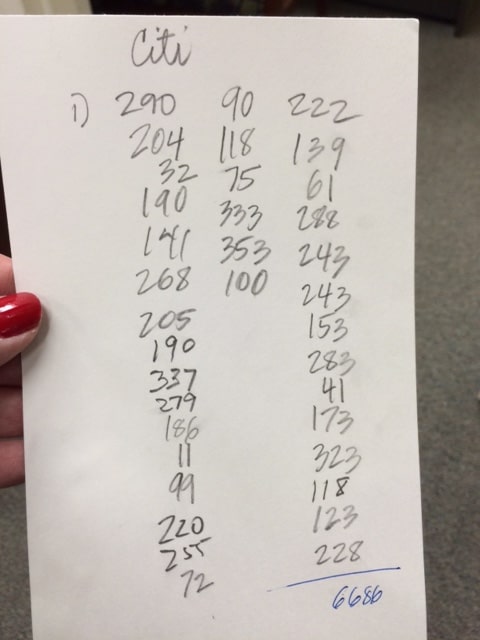 Citi
1) 290 90 222
204 118 139
32 75 61
190 333 288
141 353 243
268 100 243
205 153
190 283
337 41
279 173
186 323
11 118
99 123
220 228
255
72
6686